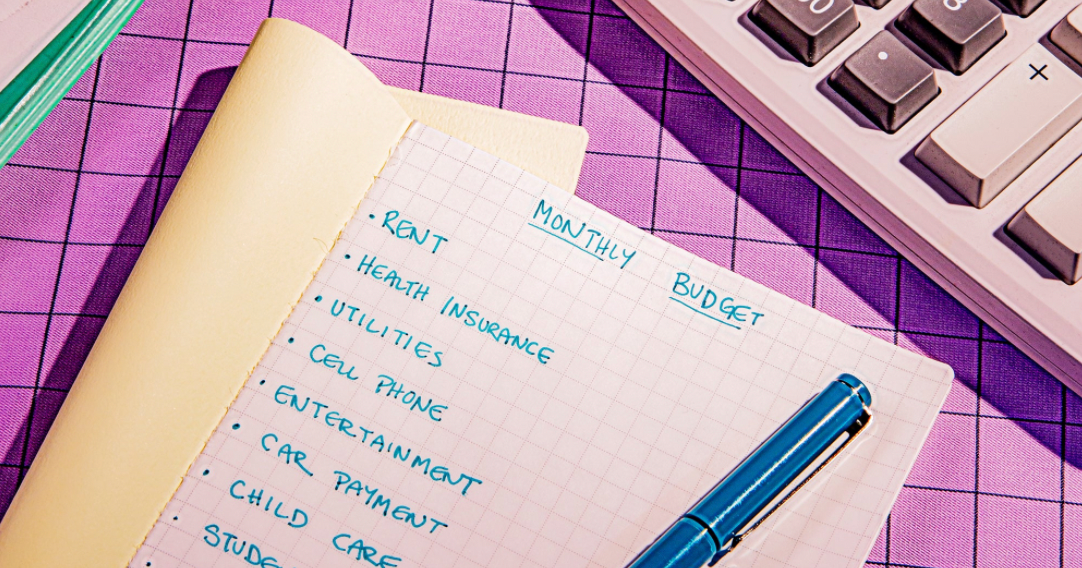 MONTHLY BUDGET
• RENT
• HEALTH INSURANCE
• UTILITIES
• CELL PHONE
• ENTERTAINMENT
• CAR PAYMENT
• CHILD CARE
•
+